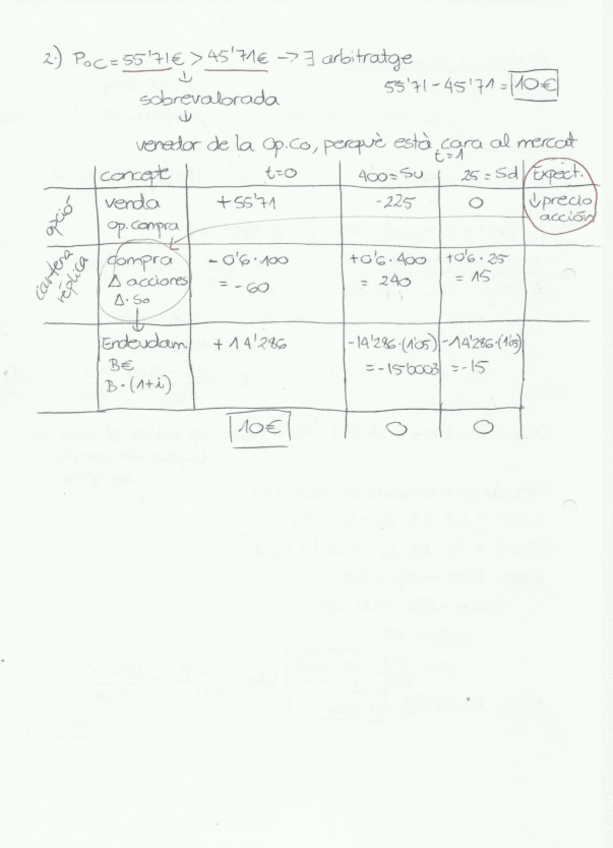 2.) PoC = 55'71€ > 45'71€ -> ∃ arbitratge
55'71 - 45'71 = 10€
↓
sobrevalorada
↓
venedor de la Op.Co, perquè està cara al mercat
t=1
concepte t=0 400=Su 25=Sd Expect.
opció venda +55'71 -225 0 ↓precio
op.compra acción
cartera rèplica compra -0'6·100 +0'6·400 +0'6·25
Δ acciones = -60 = 240 = 15
Δ·So
Endeudam. +14'286 -14'286·(1'05) -14'286·(1'05)
B€ = -15'0003 = -15
B·(1+i)
10€ 0 0